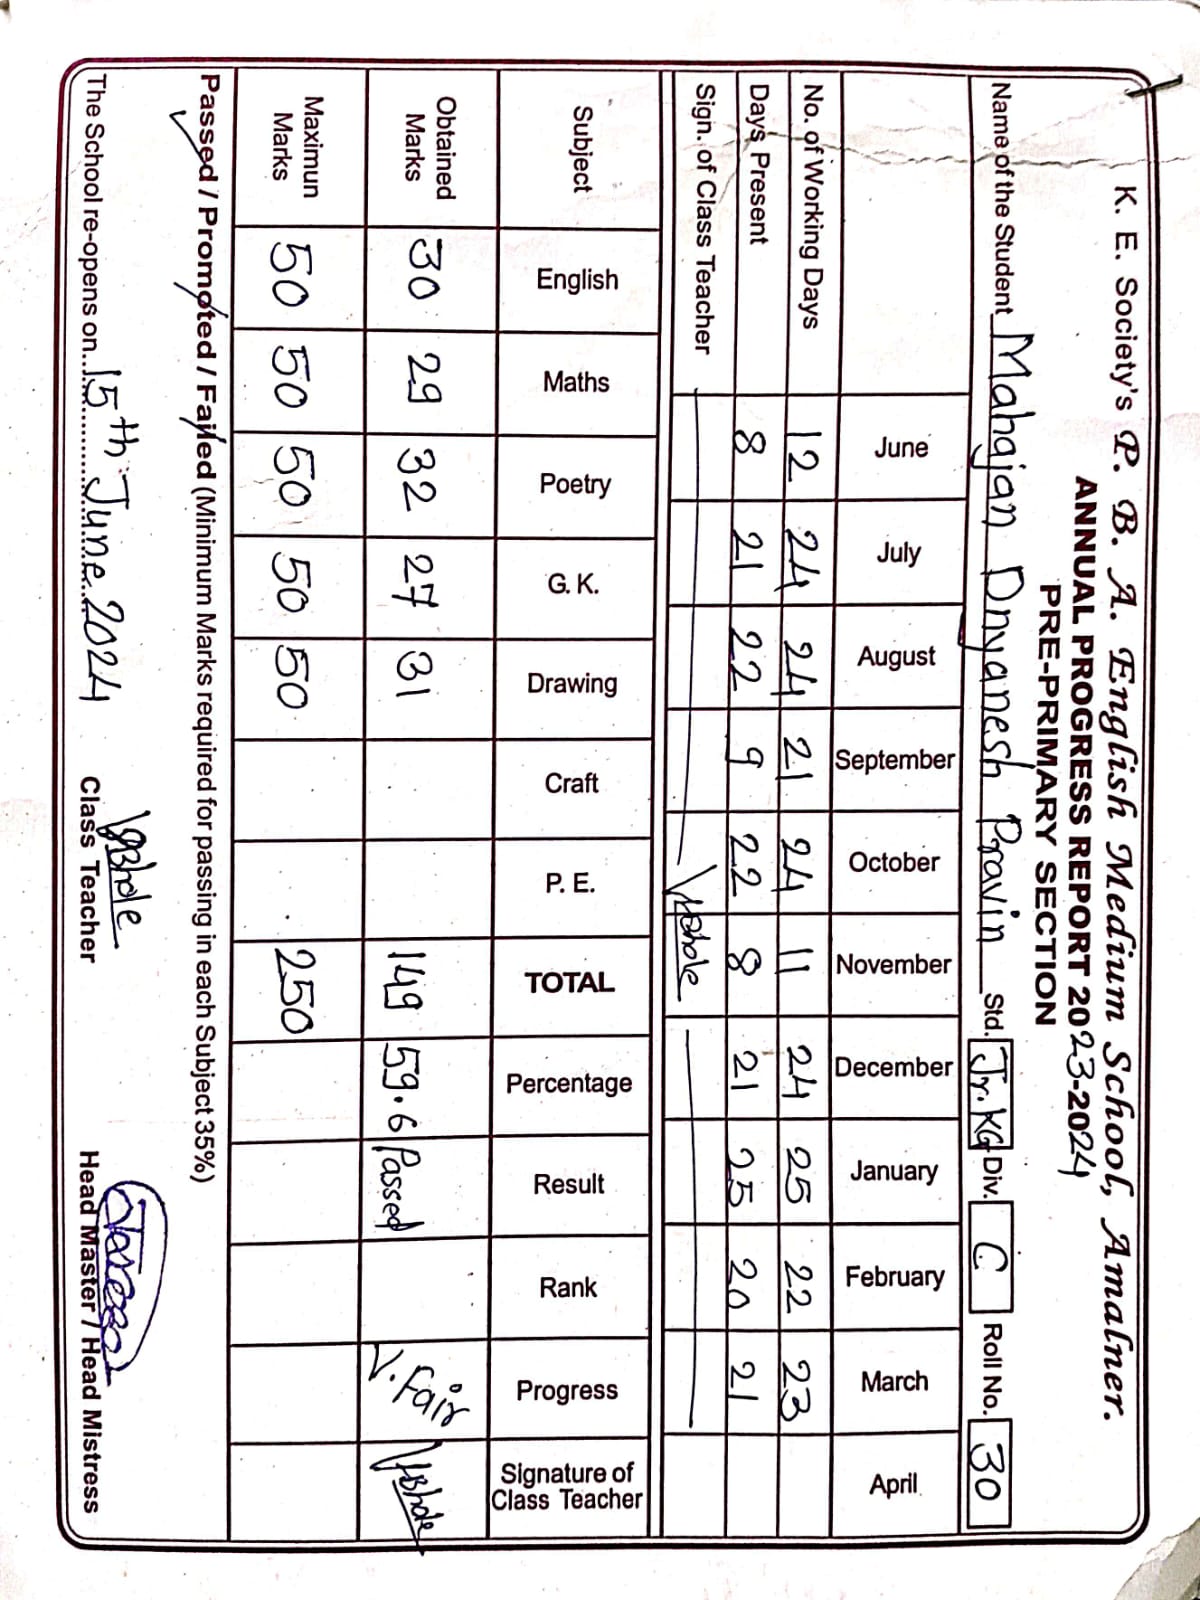 K. E. Society's P. B. A. English Medium School, Amalner.
ANNUAL PROGRESS REPORT 2023-2024
PRE-PRIMARY SECTION
Name of the Student Mahajan Dnyanesh Pravin Std. Jr. KG Div. C Roll No. 30
June July August September October November December January February March April
No. of Working Days 12 24 24 21 24 11 24 25 22 23
Days Present 8 21 22 9 22 8 21 25 20 21
Sign. of Class Teacher
Subject English Maths Poetry G. K. Drawing Craft P. E. TOTAL Percentage Result Rank Progress Signature of Class Teacher
Obtained Marks 30 29 32 27 31 149 59.6 Passed V. Fair
Maximun Marks 50 50 50 50 50 250
Passed / Promoted / Failed (Minimum Marks required for passing in each Subject 35%)
The School re-opens on 15th June 2024 Class Teacher Head Master / Head Mistress